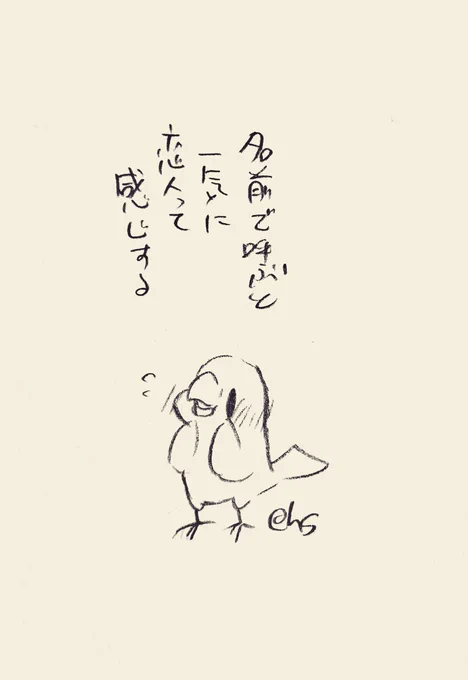 名前で呼ぶと
一気に
恋人って
感じする
@hS